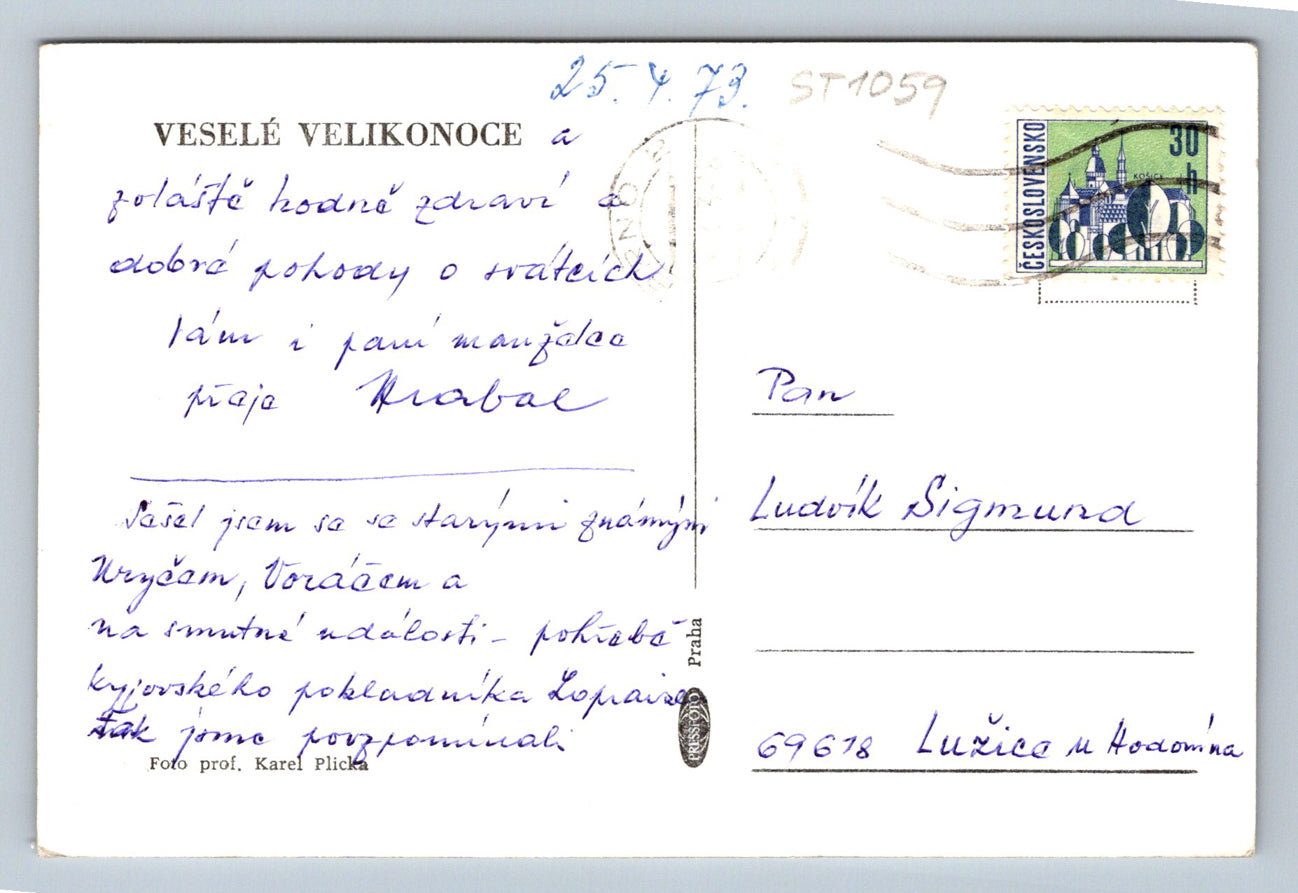 25. 4. 73.
ST1059
VESELÉ VELIKONOCE a
zvláště hodně zdraví a
dobré pohody o svátcích
Vám i paní manželce
přeje Hrabal
Sešel jsem se se starými známými
Hryčem, Voráčem a
na smutné události - pohřbě
kyjovského pokladníka
Tak jsme povzpomínali
Foto prof. Karel Plicka
PRESSFOTO Praha
ČESKOSLOVENSKO
30 h
KOŠICE
BRNO
Pan
Ludvík Sigmund
69618 Lužice u Hodonína